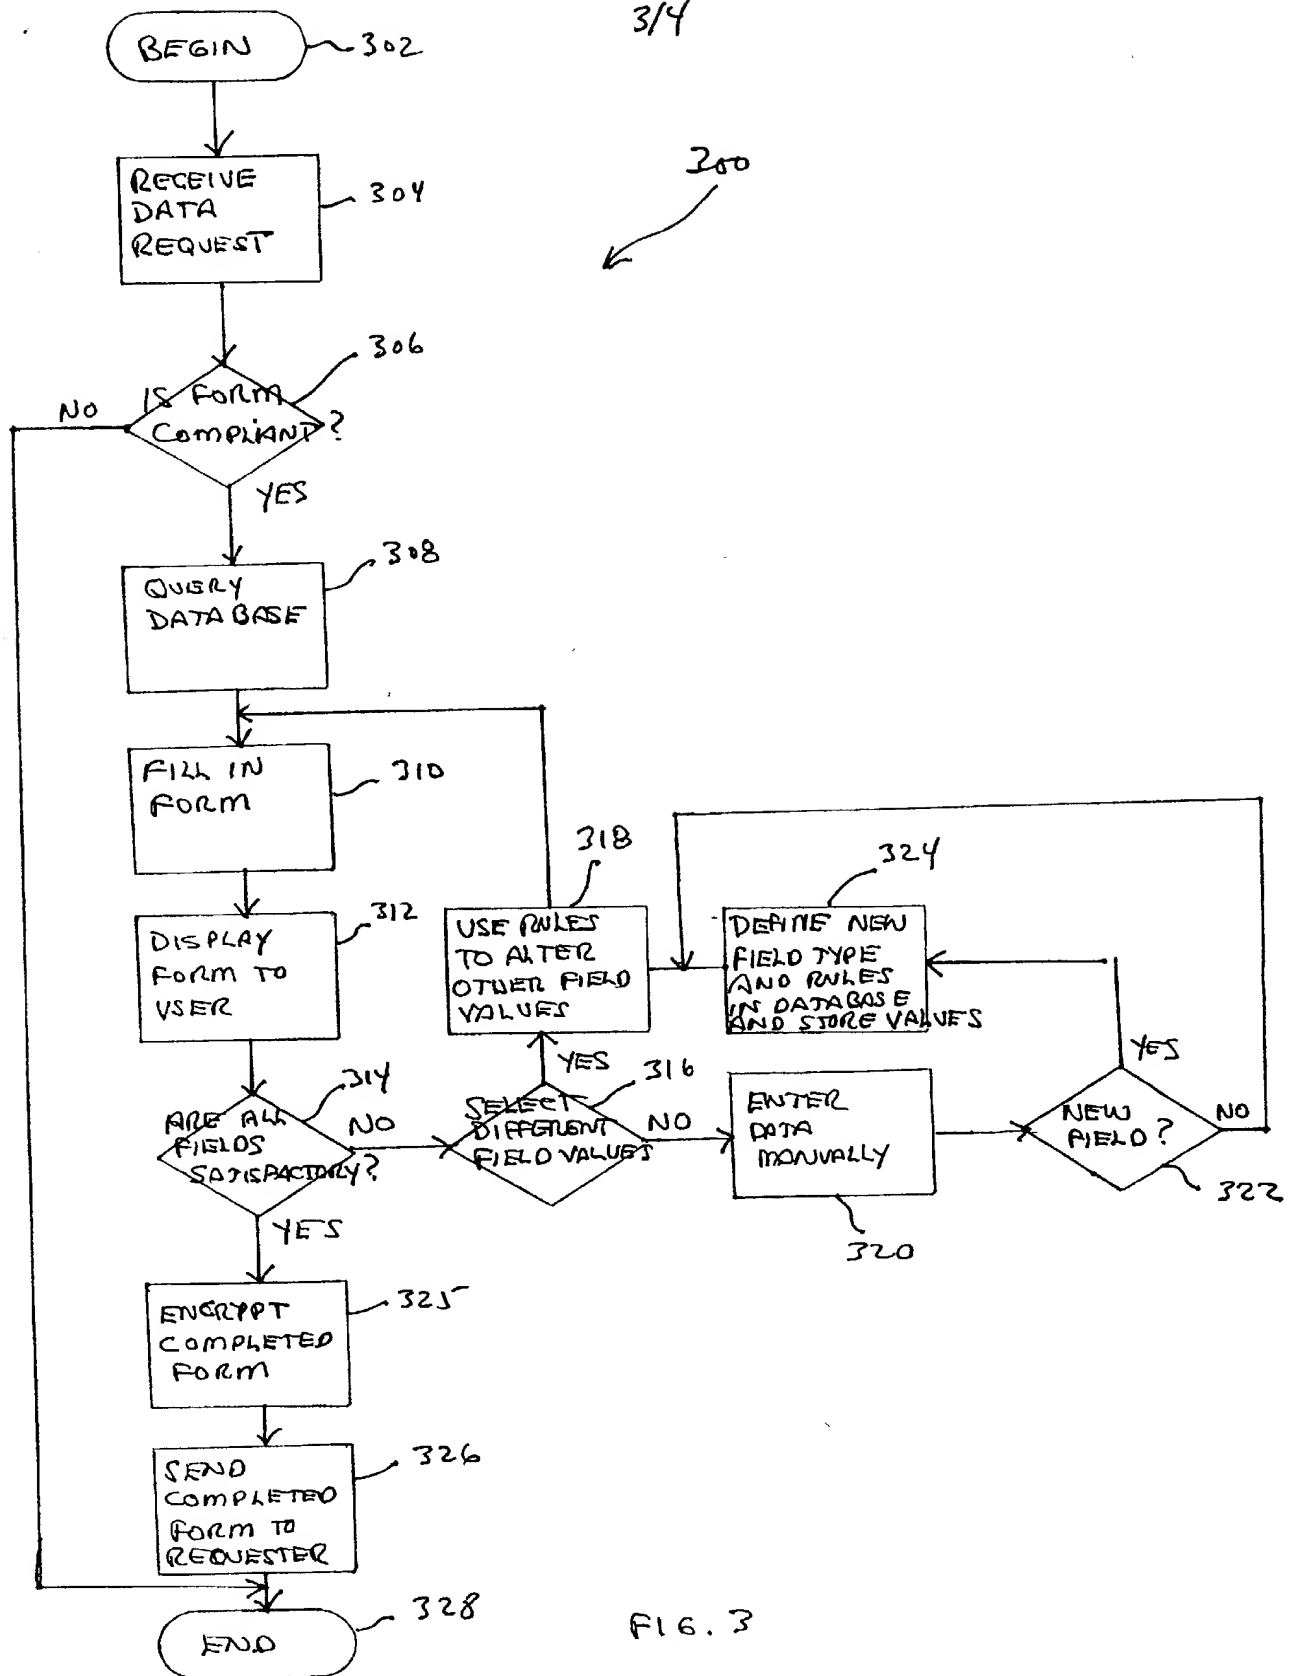 3/4
BEGIN
302
300
RECEIVE
DATA
REQUEST
304
306
IS FORM
COMPLIANT?
NO
YES
308
QUERY
DATABASE
FILL IN
FORM
310
318
324
312
DISPLAY
FORM TO
USER
USE RULES
TO ALTER
OTHER FIELD
VALUES
DEFINE NEW
FIELD TYPE
AND RULES
IN DATABASE
AND STORE VALUES
314
ARE ALL
FIELDS
SATISFACTORY?
NO
YES
316
SELECT
DIFFERENT
FIELD VALUES
YES
NO
ENTER
DATA
MANUALLY
320
NEW
FIELD?
YES
NO
322
ENCRYPT
COMPLETED
FORM
325
SEND
COMPLETED
FORM TO
REQUESTER
326
END
328
FIG. 3